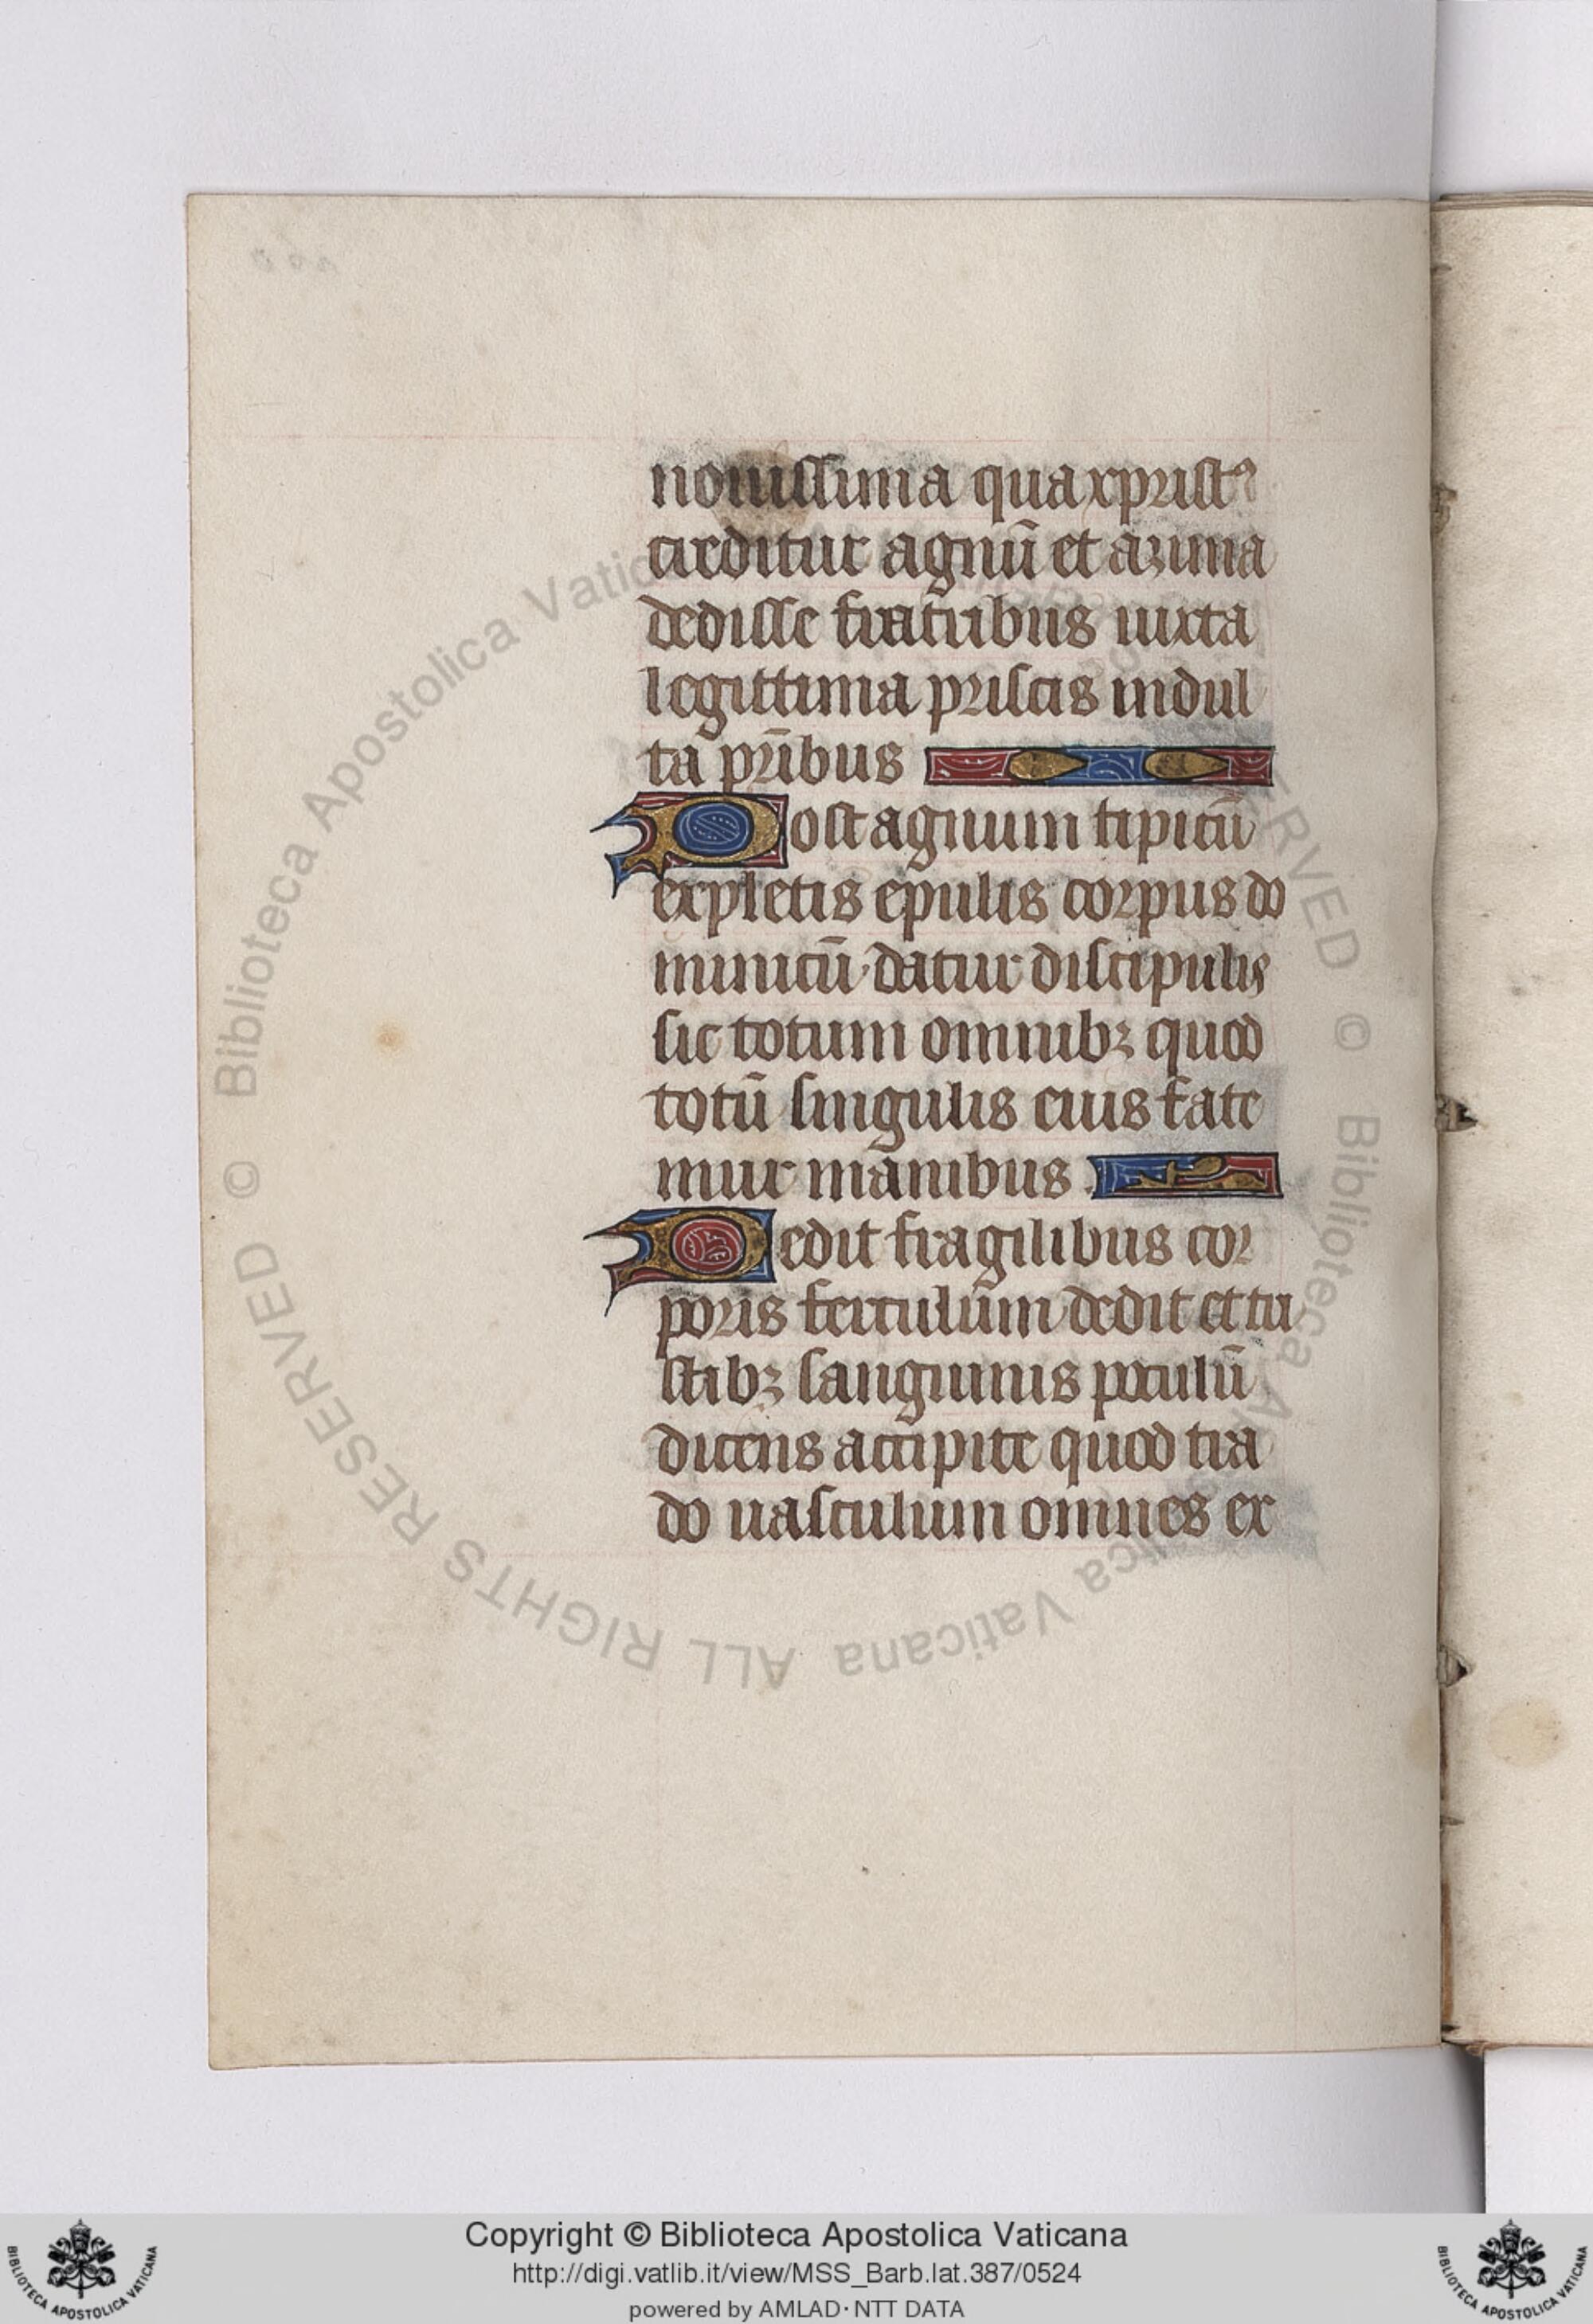 nouissima qua xp̄rist⁹
creditur agnū et azima
dedisse fratribus iuxta
legittima priscis indul
ta pr̄ibus
Post agnum tipicū
expletis epulis corpus do
minicū datur discipulis
sic totum omnibꝫ quod
totū singulis eius fate
mur manibus.
Dedit fragilibus cor
poris ferculum dedit et tri
stibꝫ sanguinis poculū
dicens accipite quod tra
do uasculum omnes ex
© Biblioteca Apostolica Vaticana ALL RIGHTS RESERVED
Copyright © Biblioteca Apostolica Vaticana
http://digi.vatlib.it/view/MSS_Barb.lat.387/0524
powered by AMLAD·NTT DATA
BIBLIOTECA APOSTOLICA VATICANA
BIBLIOTECA APOSTOLICA VATICANA